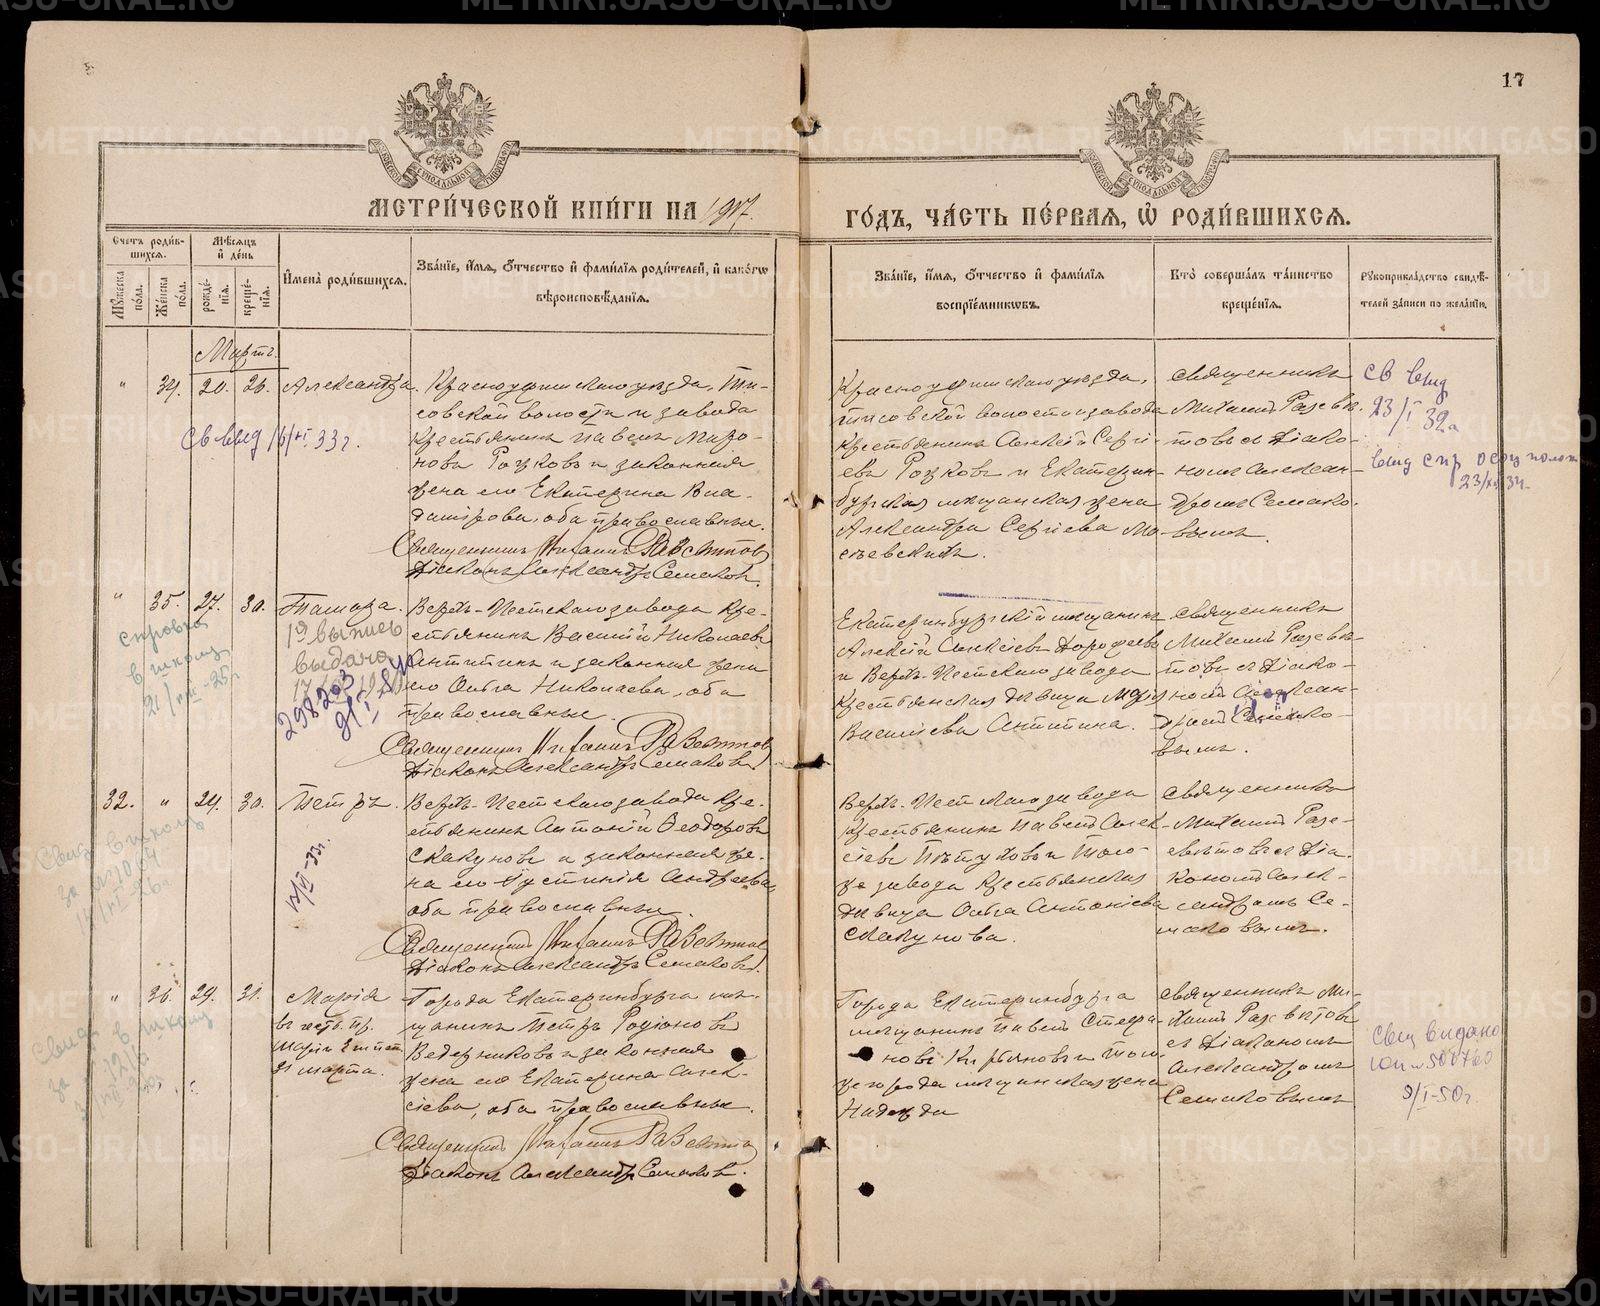 17
МЕТРИ́ЧЕСКОЙ КНИ́ГИ НА 1917.
ГО́ДЪ, ЧА́СТЬ ПЕ́РВАЯ, Ѡ РОДИ́ВШИХСЯ.
Счетъ роди́вшихся.
Му́жеска по́ла.
Же́нска по́ла.
Мѣ́сяцъ и де́нь
рожде́нїя.
креще́нїя.
Имена̀ роди́вшихся.
Зва́нїе, и́мя, о́тчество и фами́лїя роди́телей, и како́гѡ
вѣроисповѣ́данїя.
Зва́нїе, и́мя, о́тчество и фами́лїя
воспрїе́мникѡвъ.
Кто̀ соверша́лъ та́инство
креще́нїя.
Рꙋкоприкла́дство свидѣ́телей за́писи по жела́нїю.
Мартъ.
" 34. 20. 26. Александра.
Св выд 33 г.
Красноуфимскаго уезда, Ти-
совской волости и завода
крестьянинъ Павелъ Миро-
новъ Рожковъ и законная
жена его Екатерина Вла-
димірова, оба православные.
Священникъ Михаилъ Разсвѣтовъ
Діаконъ Александръ Семаковъ.
Красноуфимскаго уезда,
Тисовской волости и завода
крестьянинъ Алексій Сергі-
евъ Рожковъ и Екатерин-
бургская мѣщанская жена
Александра Сергіева Мо-
священникъ
Михаилъ Разсвѣ-
товъ съ діако-
номъ Алексан-
дромъ Семако-
вымъ.
Св выд
23/I 32г
выд спр
" 35. 27. 30. Тамара.
справка
в школу
1я выпись
выдана
298203
Верхъ-Исетскаго завода кре-
стьянинъ Василій Николаевъ
Антипинъ и законная жена
его Ольга Николаева, оба
православные.
Священникъ Михаилъ Разсвѣтовъ
Діаконъ Александръ Семаковъ.
Екатеринбургскій мѣщанинъ
Алексій Алексіевъ Дорофеевъ
и Верхъ-Исетскаго завода
крестьянская дѣвица
Василіева Антипина.
священникъ
Михаилъ Разсвѣ-
товъ съ діако-
номъ Алексан-
дромъ Семако-
вымъ.
32. " 24. 30. Петръ.
Верхъ-Исетскаго завода кре-
стьянинъ Антоній Ѳеодоровъ
Скакуновъ и законная же-
на его Іустинія Андреева,
оба православные.
Священникъ Михаилъ Разсвѣтовъ
Діаконъ Александръ Семаковъ.
Верхъ-Исетскаго завода
крестьянинъ Павелъ Алек-
сіевъ Пѣтуховъ и того-
же завода крестьянская
дѣвица Ольга Антоніева
Скакунова.
священникъ
Михаилъ Разс-
вѣтовъ съ діа-
кономъ Алек-
сандромъ Се-
маковымъ.
" 36. 29. 31. Марія
въ честь пр.
Маріи Египет.
Города Екатеринбурга мѣ-
щанинъ Петръ Родіоновъ
Ведерниковъ и законная
жена его Екатерина Алек-
сіева, оба православные.
Священникъ Михаилъ Разсвѣтовъ
Діаконъ Александръ Семаковъ.
Города Екатеринбурга
мѣщанинъ Павелъ Стефа-
новъ Кирьяновъ и того-
же города мѣщанская жена
Надежда
священникъ Ми-
хаилъ Разсвѣтовъ
съ діакономъ
Александромъ
Семаковымъ
Свид выдано
9/I-50г
METRIKI.GASO-URAL.RU